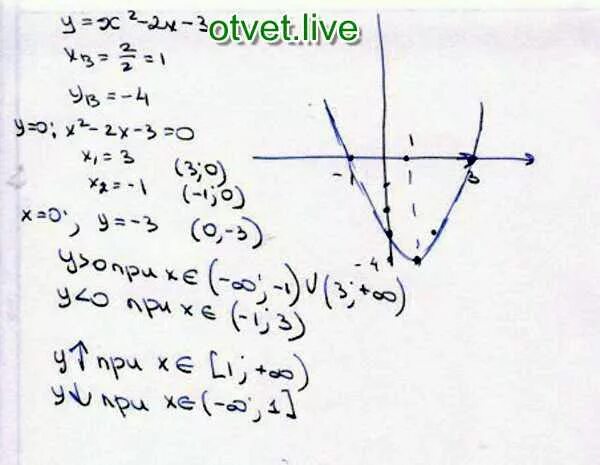 y = x² - 2x - 3
otvet.live
x_B = 2/2 = 1
y_B = -4
y=0; x² - 2x - 3 = 0
x₁ = 3 (3; 0)
x₂ = -1 (-1; 0)
x=0; y = -3 (0, -3)
y>0 при x ∈ (-∞; -1) ∪ (3; +∞)
y<0 при x ∈ (-1; 3)
y↑ при x ∈ [1; +∞)
y↓ при x ∈ (-∞; 1]
1
-1
3
-4